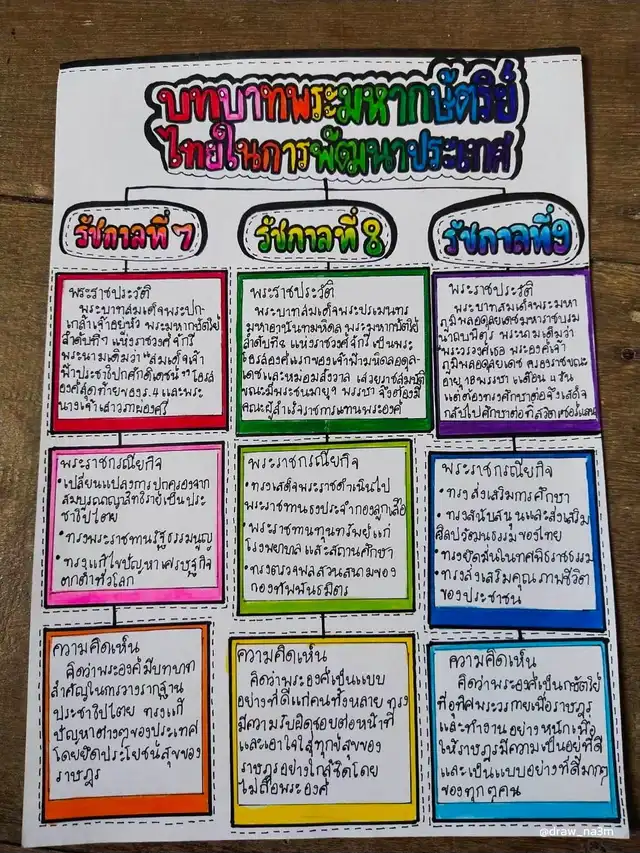 บทบาทพระมหากษัตริย์
ไทยในการพัฒนาประเทศ
รัชกาลที่ 7
พระราชประวัติ
พระบาทสมเด็จพระปก-
เกล้าเจ้าอยู่หัว พระมหากษัตริย์
ลำดับที่7 แห่งราชวงศ์จักรี
พระนามเดิมว่า "สมเด็จเจ้า
ฟ้าประชาธิปกศักดิเดชน์" โอรส
องค์สุดท้ายของร.5 และพระ
นางเจ้าเสาวภาผ่องศรี
พระราชกรณียกิจ
• เปลี่ยนแปลงการปกครองจาก
สมบูรณาญาสิทธิราชย์เป็นประ
ชาธิปไตย
• ทรงพระราชทานรัฐธรรมนูญ
• ทรงแก้ไขปัญหาเศรษฐกิจ
ตกต่ำทั่วโลก
ความคิดเห็น
คิดว่าพระองค์มีบทบาท
สำคัญในการวางรากฐาน
ประชาธิปไตย ทรงแก้
ปัญหาต่างๆของประเทศ
โดยยึดประโยชน์สุขของ
ราษฎร
รัชกาลที่ 8
พระราชประวัติ
พระบาทสมเด็จพระปรเมนทร
มหาอานันทมหิดล พระมหากษัตริย์
ลำดับที่8 แห่งราชวงศ์จักรี เป็นพระ
โอรสองค์แรกของเจ้าฟ้ามหิดลอดุล-
เดชและหม่อมสังวาล เสวยราชสมบัติ
ขณะมีพระชนมายุ9 พรรษา จึงต้องมี
คณะผู้สำเร็จราชการแทนพระองค์
พระราชกรณียกิจ
• ทรงเสด็จพระราชดำเนินไป
พระราชทานธงประจำกองลูกเสือ
• พระราชทานทุนทรัพย์แก่
โรงพยาบาล และสถานศึกษา
• ทรงตรวจพลสวนสนามของ
กองทัพพันธมิตร
ความคิดเห็น
คิดว่าพระองค์เป็นแบบ
อย่างที่ดีแก่คนทั้งหลาย ทรง
มีความรับผิดชอบต่อหน้าที่
และเอาใจใส่ทุกข์สุขของ
ราษฎรอย่างใกล้ชิดโดย
ไม่ถือพระองค์
รัชกาลที่9
พระราชประวัติ
พระบาทสมเด็จพระมหา
ภูมิพลอดุลยเดชมหาราชบรม
นาถบพิตร พระนามเดิมว่า
พระวรวงศ์เธอ พระองค์เจ้า
ภูมิพลอดุลยเดช ครองราชขณะ
อายุ 18พรรษา แต่ต้องทรงศึกษาต่อจึงเสด็จ
กลับไปศึกษาต่อที่สวิตเซอร์แลนด์
พระราชกรณียกิจ
• ทรงส่งเสริมการศึกษา
• ทรงสนับสนุนและส่งเสริม
ศิลปวัฒนธรรมของไทย
• ทรงยึดมั่นในทศพิธราชธรรม
• ทรงส่งเสริมคุณภาพชีวิต
ของประชาชน
ความคิดเห็น
คิดว่าพระองค์เป็นกษัตริย์
ที่อุทิศพระวรกายเพื่อราษฎร
และทำงานอย่างหนักเพื่อ
ให้ราษฎรมีความเป็นอยู่ที่ดี
และเป็นแบบอย่างที่ดีมากๆ
ของทุกๆคน
@draw_na3m